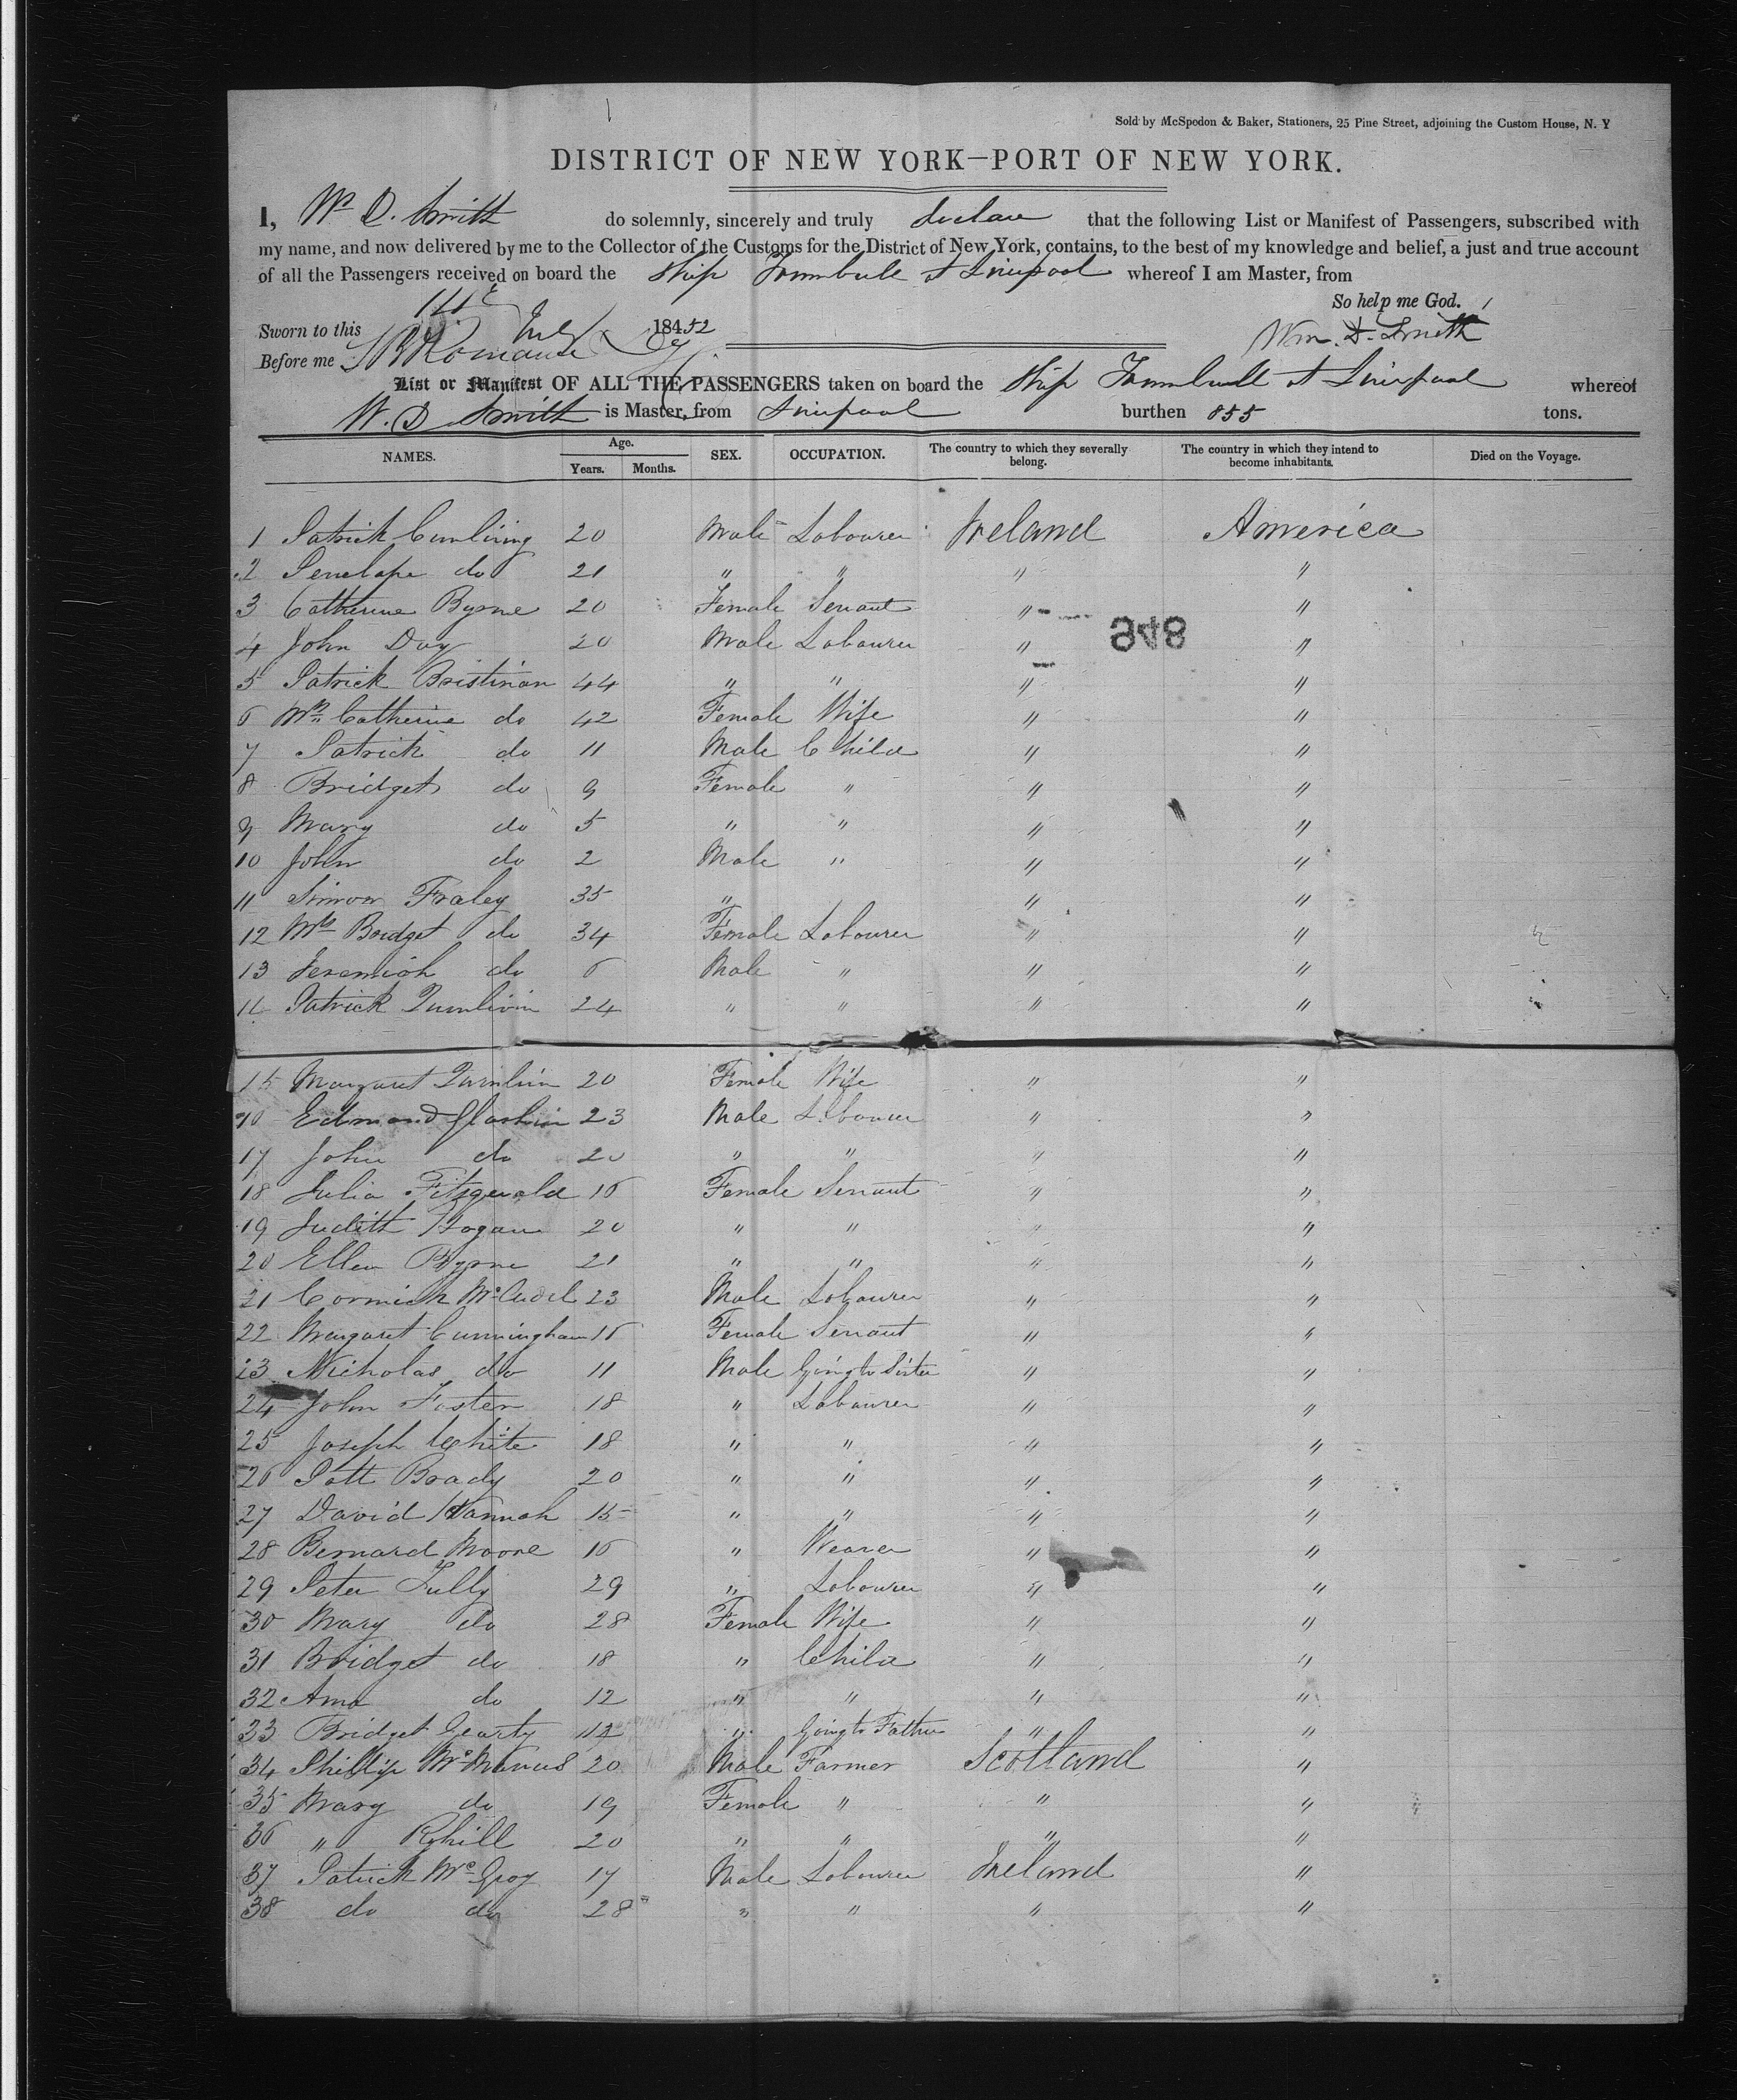 Sold by McSpedon & Baker, Stationers, 25 Pine Street, adjoining the Custom House, N. Y
DISTRICT OF NEW YORK—PORT OF NEW YORK.
I, Wm D. Smith do solemnly, sincerely and truly declare that the following List or Manifest of Passengers, subscribed with
my name, and now delivered by me to the Collector of the Customs for the District of New York, contains, to the best of my knowledge and belief, a just and true account
of all the Passengers received on board the Ship of Liverpool whereof I am Master, from
So help me God.
Sworn to this July 184 52
Wm. D. Smith
Before me
List or Manifest OF ALL THE PASSENGERS taken on board the Ship of Liverpool whereof
W. D Smith is Master, from Liverpool burthen 855 tons.
NAMES. Age. Years. Months. SEX. OCCUPATION. The country to which they severally belong. The country in which they intend to become inhabitants. Died on the Voyage.
1 Patrick 20 Male Labourer Ireland America
2 Penelope do 21 " " " "
3 Catherine Byrne 20 Female Servant " "
848
4 John Day 20 Male Labourer " "
5 Patrick Bristinan 44 " " " "
6 Mrs Catherine do 42 Female Wife " "
7 Patrick do 11 Male Child " "
8 Bridget do 9 Female " " "
9 Mary do 5 " " " "
10 John do 2 Male " " "
11 Simon Fraley 35 " " "
12 Mrs Bridget do 34 Female Labourer " "
13 Jeremiah do 6 Male " " "
14 Patrick Quinlivin 24 " " " "
15 Margaret Quinlivin 20 Female Wife " "
16 Edmond 23 Male Labourer " "
17 John do 20 " " " "
18 Julia Fitzgerald 16 Female Servant " "
19 Judith Hogan 20 " " " "
20 Ellen Byrne 21 " " " "
21 Cormick 23 Male Labourer " "
22 Margaret Cunningham 16 Female Servant " "
23 Nicholas do 11 Male Going to Sister " "
24 John Foster 18 " Labourer " "
25 Joseph White 18 " " " "
26 Patt Brady 20 " " " "
27 David Hannah 15 " " " "
28 Bernard Moore 16 " Weaver " "
29 Peter Tully 29 " Labourer " "
30 Mary do 28 Female Wife " "
31 Bridget do 18 " Child " "
32 Ann do 12 " " " "
33 Bridget Gearty 12 " Going to Father " "
34 Phillip McManus 20 Male Farmer Scotland "
35 Mary do 19 Female " " "
36 " Ryhill 20 " " " "
37 Patrick McGroy 17 Male Labourer Ireland "
38 do do 28 " " " "